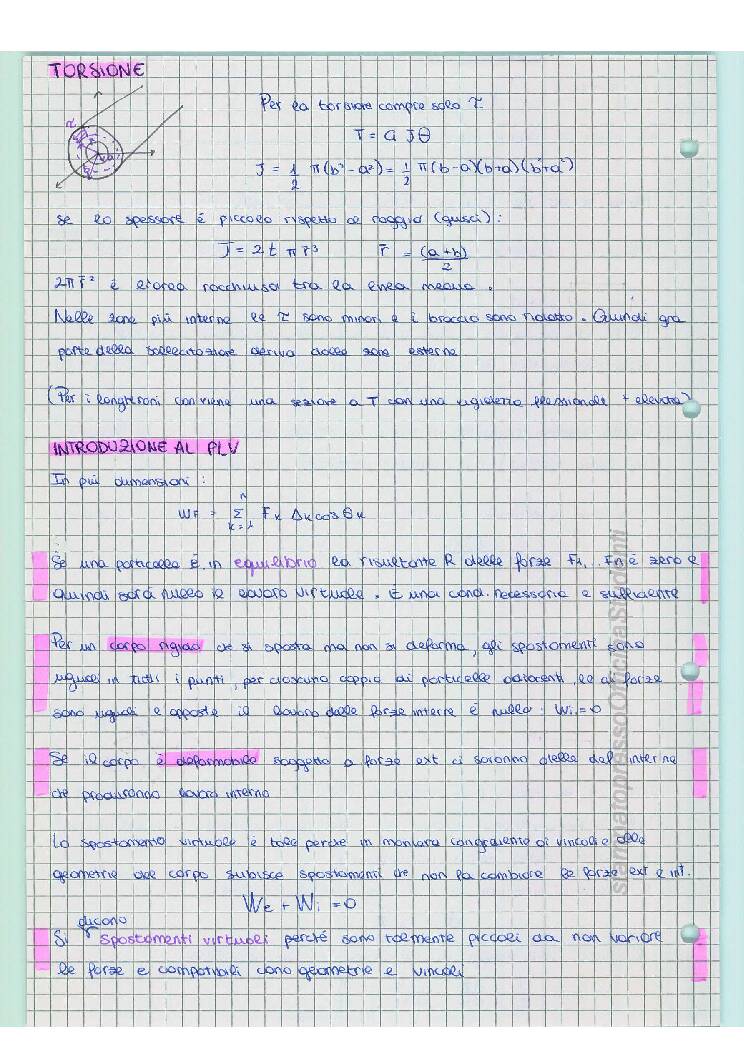 TORSIONE
Per la torsione compre solo τ.
T = G J θ
J = 1/2 π (b⁴ - a⁴) = 1/2 π (b-a)(b+a)(b²+a²)
se lo spessore é piccolo rispetto al raggio (gusci):
J = 2 t π r̄³ r̄ = (a+b)/2
2π r̄² é l'area racchiusa tra la linea media.
Nelle zone piú interne le τ sono minori e i braccio sono ridotto. Quindi gra
parte della sollecitazione deriva dalle zone esterne
(Per i longheroni conviene una sezione a T con una rigidezza flessionale + elevata)
INTRODUZIONE AL PLV
In piú dimensioni:
WF = Σ Fk Δk cos θk
n
k=1
Se una particella É in equilibrio la risultante R delle forze F1,.. Fn é zero e
quindi sará nullo il lavoro virtuale. E una cond. necessaria e sufficiente
Per un corpo rigido che si sposta ma non si deforma, gli spostamenti sono
uguali in tutti i punti, per ciascuna coppia di particelle adiacenti, le di forze
sono uguali e opposte il lavoro delle forze interne é nullo: Wi=0
Se il corpo é deformabile soggetto a forze ext ci saranno delle def interne
che produrranno lavoro interno
Lo spostamento virtuale é tale perche in maniera congruente ai vincoli e alle
geometrie del corpo subisce spostamenti che non fa cambiare le forze ext e int.
We + Wi = 0
dicono
Si spostamenti virtuali perché sono talmente piccoli da non variare
le forze e compatibili cono geometrie e vincoli
stampatopressoOfficinaStudenti